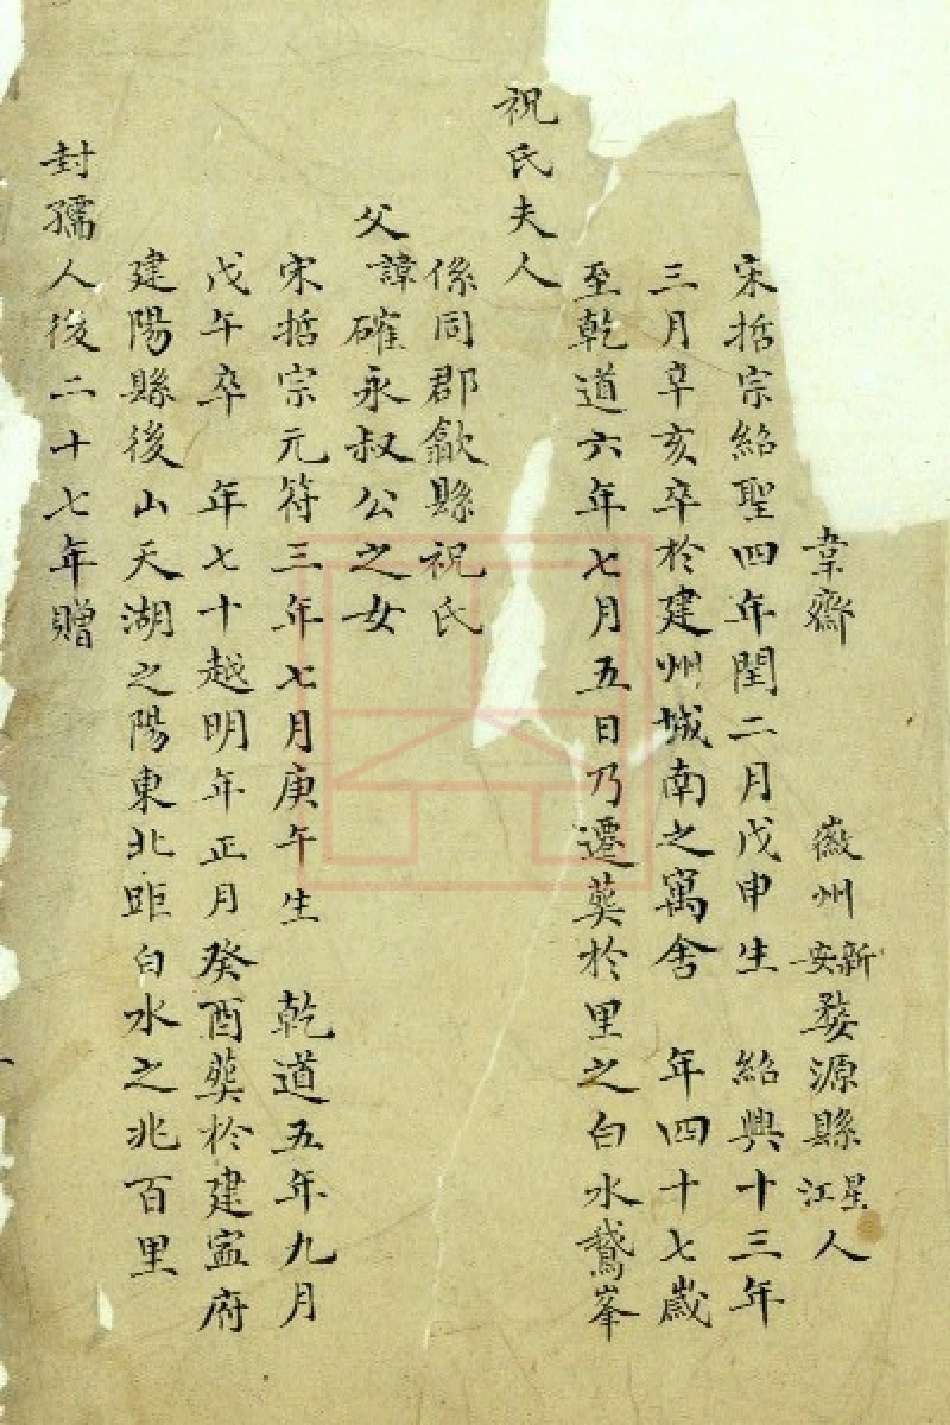 韋齋 徽州新安婺源縣星江人
宋哲宗紹聖四年閏二月戊申生 紹興十三年
三月辛亥卒於建州城南之寓舍 年四十七歲
至乾道六年七月五日乃遷葬於里之白水鵞峯
祝氏夫人
係同郡歙縣祝氏
父諱確永叔公之女
宋哲宗元符三年七月庚午生 乾道五年九月
戊午卒 年七十越明年正月癸酉葬於建寍府
建陽縣後山天湖之陽東北距白水之兆百里
封孺人後二十七年贈